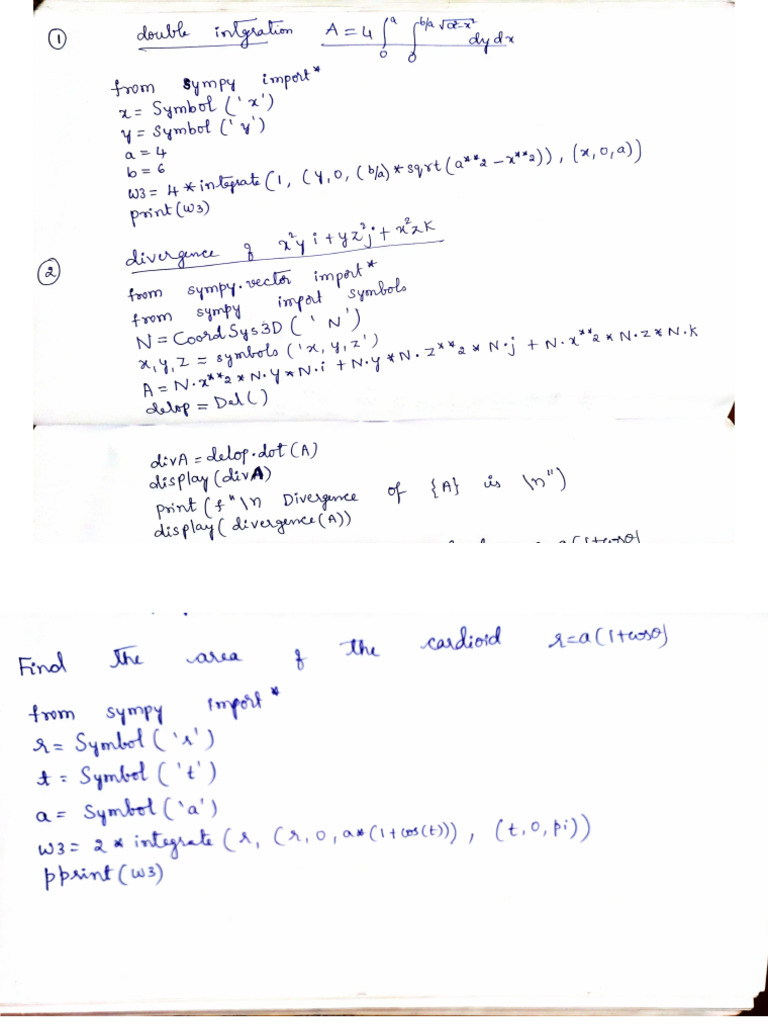 ① double intgration A = 4 ∫₀ᵃ ∫₀^(b/a √a²-x²) dy dx
from sympy import*
x = Symbol ('x')
y = Symbol ('y')
a = 4
b = 6
w3 = 4 * integrate (1, (y,0, (b/a) * sqrt (a**2 - x**2)), (x,0,a))
print (w3)
② divergence of x²y i + yz²j + x²zK
from sympy.vector import*
from sympy import symbols
N = CoordSys3D ('N')
x, y, z = symbols ('x, y, z')
A = N.x**2 * N.y * N.i + N.y * N.z**2 * N.j + N.x**2 * N.z * N.K
delop = Del()
divA = delop.dot (A)
display (divA)
print (f"\n Divergence of {A} is \n")
display( divergence (A))
a(1+cosθ)
Find the area of the cardioid r=a(1+cosθ)
from sympy import*
r = Symbol ('r')
t = Symbol ('t')
a = Symbol ('a')
w3 = 2 * integrate (r, (r, 0, a*(1+cos(t))), (t,0,pi))
pprint (w3)